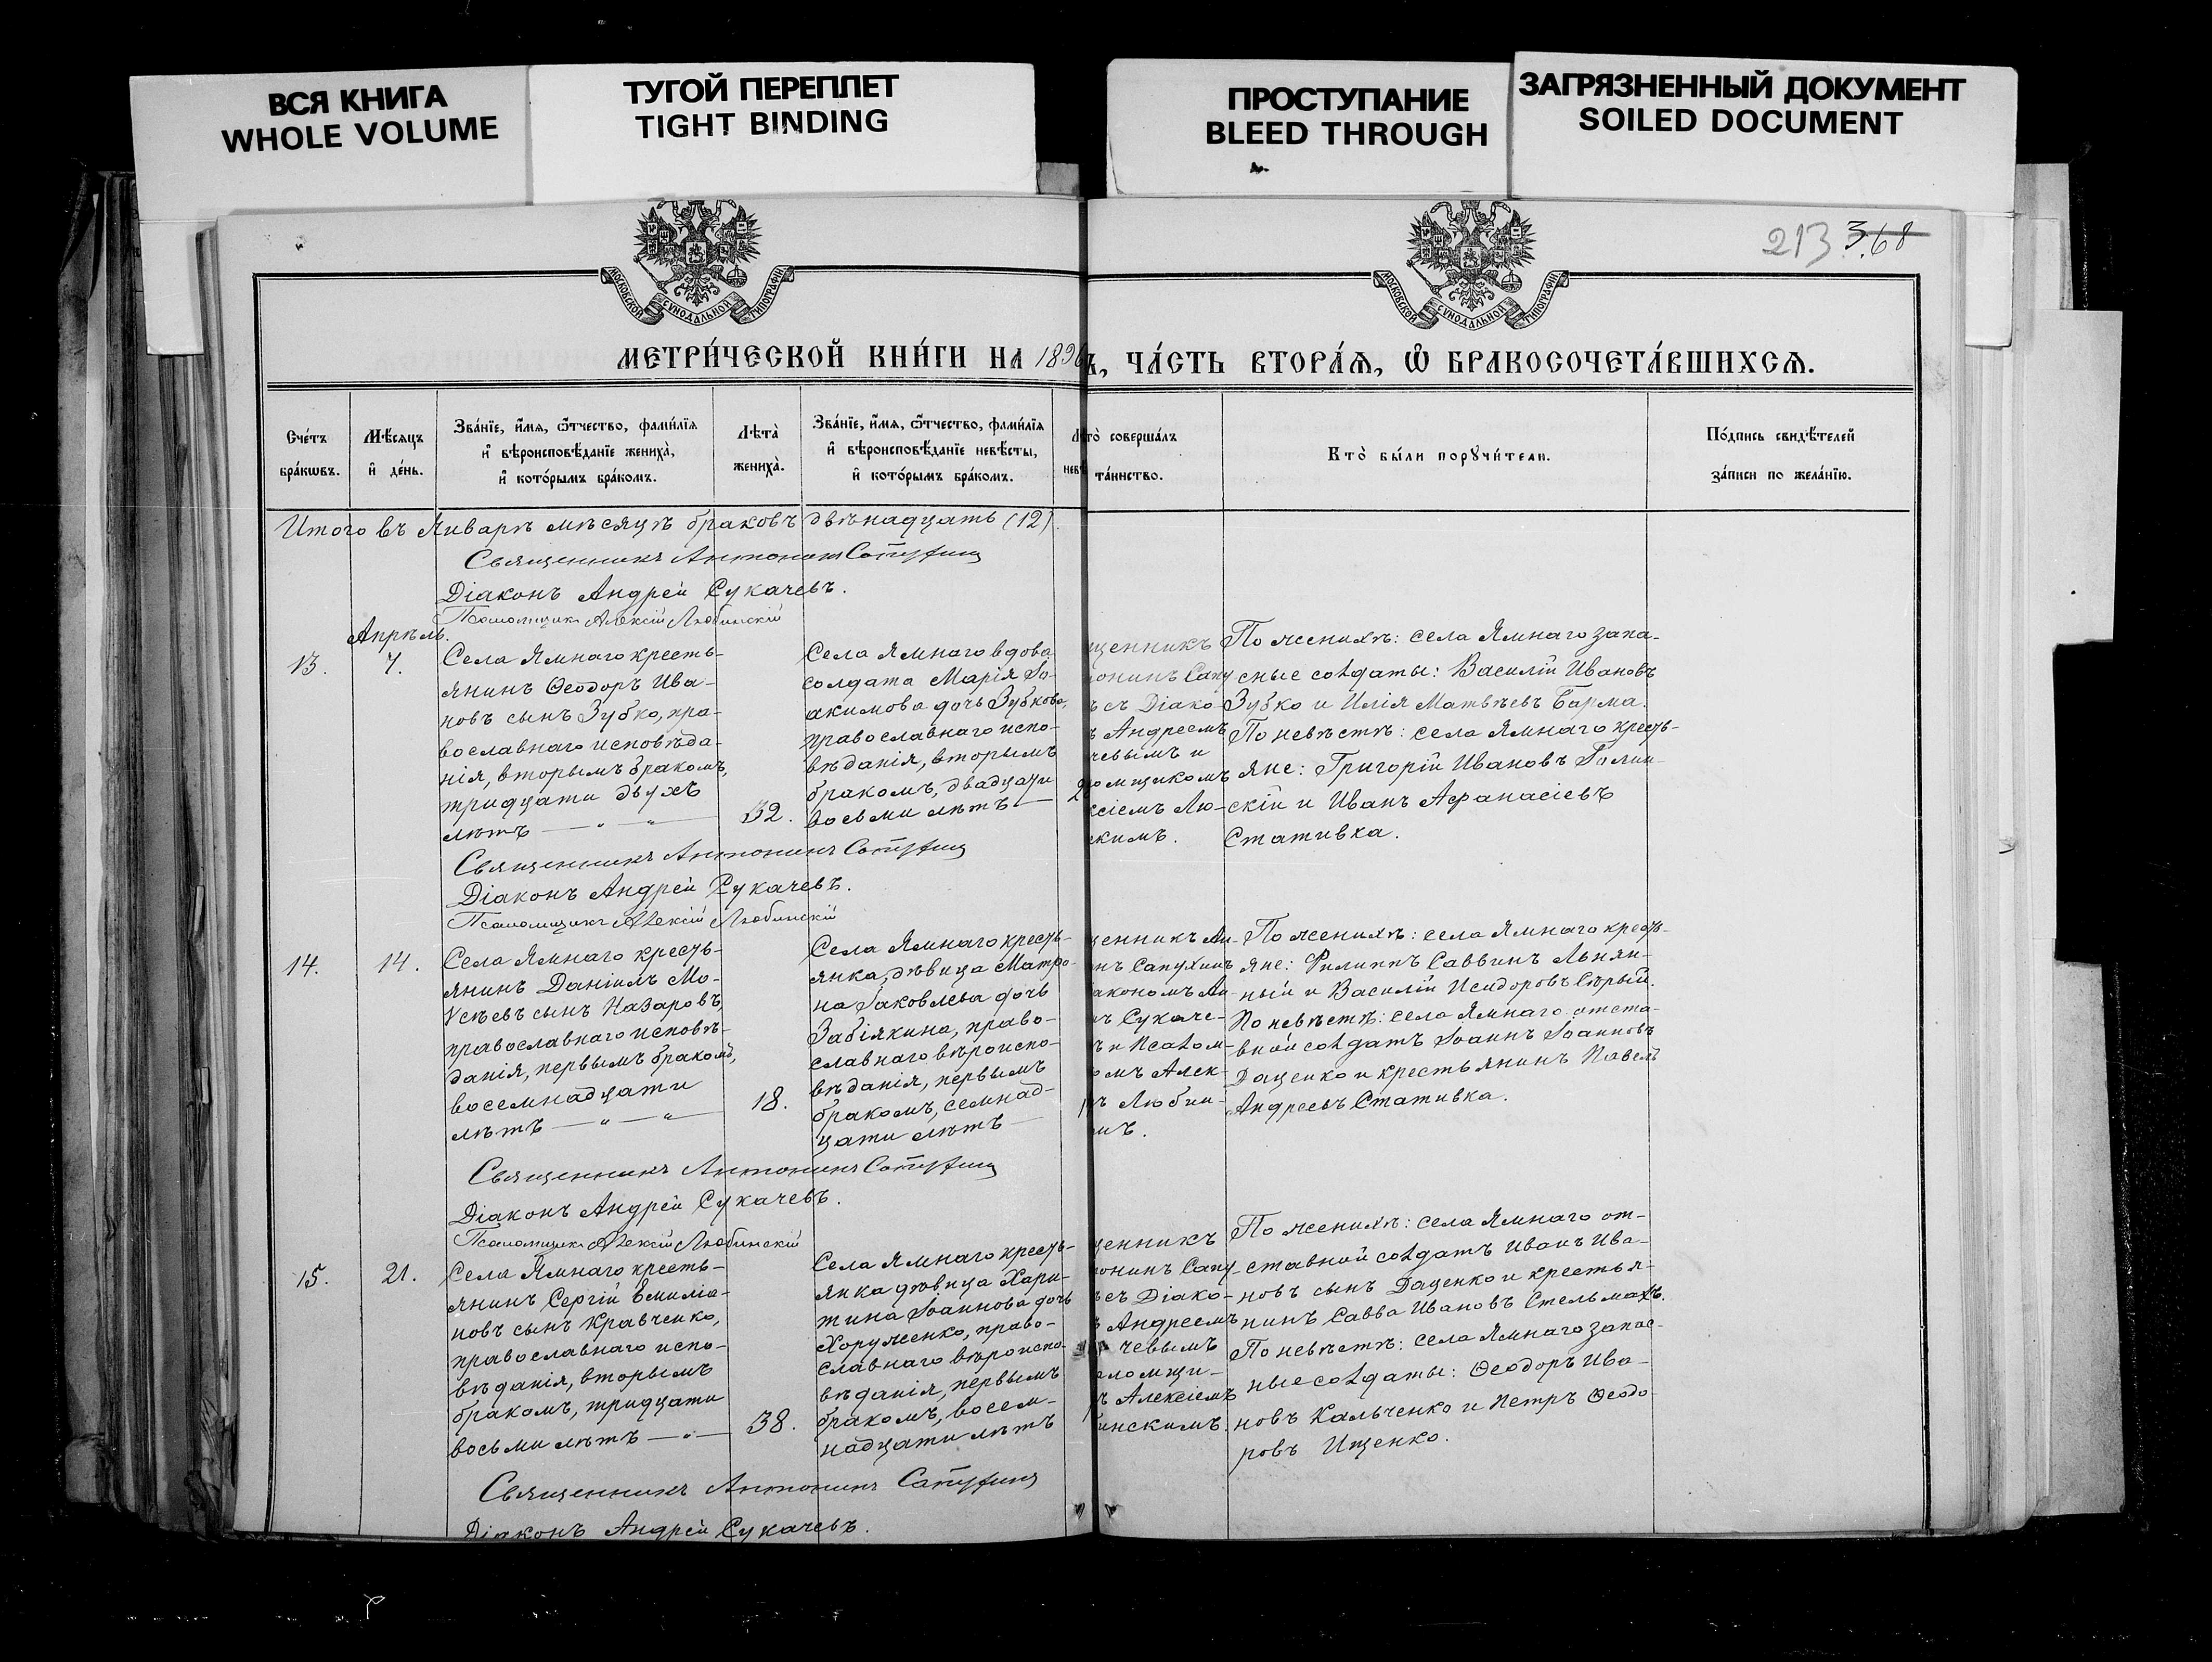 ВСЯ КНИГА
WHOLE VOLUME
ТУГОЙ ПЕРЕПЛЕТ
TIGHT BINDING
ПРОСТУПАНИЕ
BLEED THROUGH
ЗАГРЯЗНЕННЫЙ ДОКУМЕНТ
SOILED DOCUMENT
213 368
МОСКОВСКОЙ СѴНОДАЛЬНОЙ ТИПОГРАФІИ
МОСКОВСКОЙ СѴНОДАЛЬНОЙ ТИПОГРАФІИ
МЕТРИ́ЧЕСКОЙ КНИ́ГИ НА 1896
ъ, ЧА́СТЬ ВТОРА́Ѧ, Ѽ БРАКОСОЧЕТА́ВШИХСѦ.
Сче́тъ
бра́кѡвъ.
Мѣ́сѧцъ
и҆ де́нь.
Зва́нїе, и҆́мѧ, ѻ҆́тчество, фами́лїѧ
и҆ вѣроисповѣ́данїе жениха̀,
и҆ кото́рымъ бра́комъ.
Лѣта̀
жениха̀.
Зва́нїе, и҆́мѧ, ѻ҆́тчество, фами́лїѧ
и҆ вѣроисповѣ́данїе невѣ́сты,
и҆ кото́рымъ бра́комъ.
Лѣ
невѣ
то̀ соверша́лъ
та́инство.
Кто̀ бы́ли порꙋчи́тели.
По́дпись свидѣ́телей
за́писи по жела́нїю.
Итого въ Январѣ мѣсяцѣ браковъ двѣнадцать (12).
Священникъ Антонинъ Сапухин
Діаконъ Андрей Сукачевъ.
Псаломщикъ Алексій Любинскій
Апрѣль.
13.
7.
Села Ямнаго кресть-
янинъ Ѳеодоръ Ива-
новъ сынъ Зубко, пра-
вославнаго исповѣда-
нія, вторымъ бракомъ,
тридцати двухъ
лѣтъ — " — " —
32.
Села Ямнаго вдова
солдата Марія Іо-
акимова дочь Зубкова,
православнаго испо-
вѣданія, вторымъ
бракомъ, двадцати
восьми лѣтъ —
2
щенникъ
онинъ Сапу
ъ съ Діако-
ъ Андреемъ
чевымъ и
омщикомъ
ксіемъ Лю-
скимъ.
По женихѣ: села Ямнаго запа-
сные солдаты: Василій Ивановъ
Зубко и Илія Матвѣевъ Барма.
По невѣстѣ: села Ямнаго кресть-
яне: Григорій Ивановъ
скій и Иванъ Афанасіевъ
Стативка.
Священникъ Антонинъ Сапухин
Діаконъ Андрей Сукачевъ.
Псаломщикъ Алексій Любинскій
14.
14.
Села Ямнаго кресть-
янинъ Даніилъ Мо-
ѵсѣевъ сынъ Назаровъ,
православнаго исповѣ-
данія, первымъ бракомъ,
восемнадцати
лѣтъ — " — " —
18.
Села Ямнаго кресть-
янка, дѣвица Матро-
на Іаковлева дочь
Забіякина, право-
славнаго вѣроиспо-
вѣданія, первымъ
бракомъ, семнад-
цати лѣтъ —
щенникъ Ан-
нъ Сапухинъ
акономъ Ан-
ъ Сукаче-
ъ и Псалом-
омъ Алек-
ъ Любин-
мъ.
По женихѣ: села Ямнаго кресть-
яне: Филиппъ Саввинъ Льнян-
ный и Василій Исидоровъ Сѣрый.
По невѣстѣ: села Ямнаго отста-
вной солдатъ Іоаннъ Іоанновъ
Даценко и крестьянинъ Павелъ
Андреевъ Стативка.
Священникъ Антонинъ Сапухин
Діаконъ Андрей Сукачевъ.
Псаломщикъ Алексій Любинскій
15.
21.
Села Ямнаго кресть-
янинъ Сергій Емиліа-
новъ сынъ Кравченко,
православнаго испо-
вѣданія, вторымъ
бракомъ, тридцати
восьми лѣтъ — " —
38.
Села Ямнаго кресть-
янка дѣвица Хари-
тина Іоаннова дочь
Хоруженко, право-
славнаго вѣроиспо-
вѣданія, первымъ
бракомъ, восем-
надцати лѣтъ
щенникъ
онинъ Сапу-
ъ съ Діако-
ъ Андреемъ
чевымъ
аломщи-
ъ Алексіемъ
бинскимъ.
По женихѣ: села Ямнаго от-
ставной солдатъ Иванъ Ива-
новъ сынъ Даценко и крестья-
нинъ Савва Ивановъ Стельмахъ.
По невѣстѣ: села Ямнаго запас-
ные солдаты: Ѳеодоръ Ива-
новъ Кальченко и Петръ Ѳеодо-
ровъ Ищенко.
Священникъ Антонинъ Сапухинъ
Діаконъ Андрей Сукачевъ.